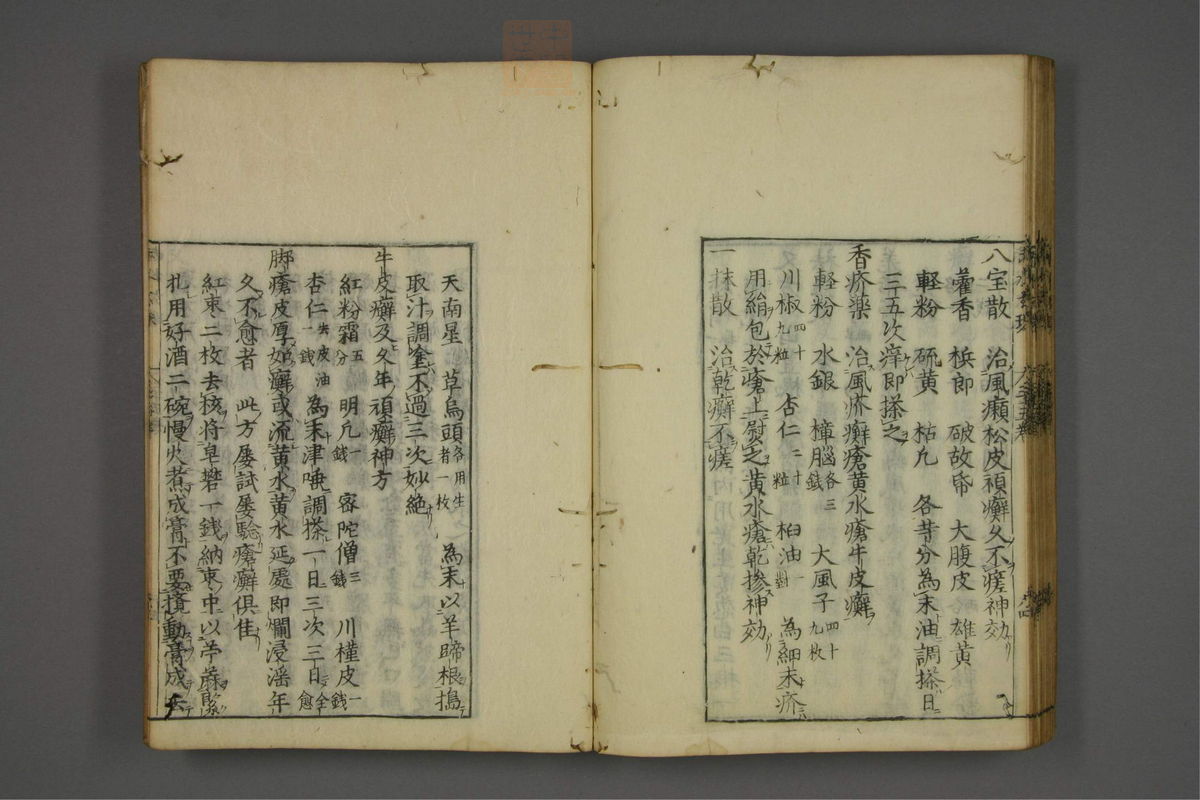 八宝散　治風癩松皮頑癬久不瘥神効
藿香　梹郎　破故帋　大腹皮　雄黄
軽粉　硫黄　枯凢　各等分為末油調搽日
三五次痒即搽之
香疥薬　治風疥癬瘡黄水瘡牛皮癬
軽粉　水銀　樟脳各三銭　大風子四十九枚
川椒四十九粒　杏仁二十粒　柏油一對　為細末疥
用絹包於瘡上熨之黄水瘡乾摻神効
一抹散　治乾癬不瘥
天南星　草烏頭各用生者一枚　為末以羊蹄根搗
取汁調塗不過三次妙絶
牛皮癬及久年頑癬神方
紅粉霜五分　明凢一銭　密陀僧三銭　川槿皮一銭
杏仁去皮油一銭　為末津唾調搽一日三次三日全愈
脚瘡皮厚如癬或流黄水黄水延處即爛浸淫年
久不愈者　此方屡試屡驗瘡癬俱佳
紅枣二枚去核将皂礬一銭納枣中以苧蔴緊
扎用好酒二碗慢火煮成膏不要攪動膏成去